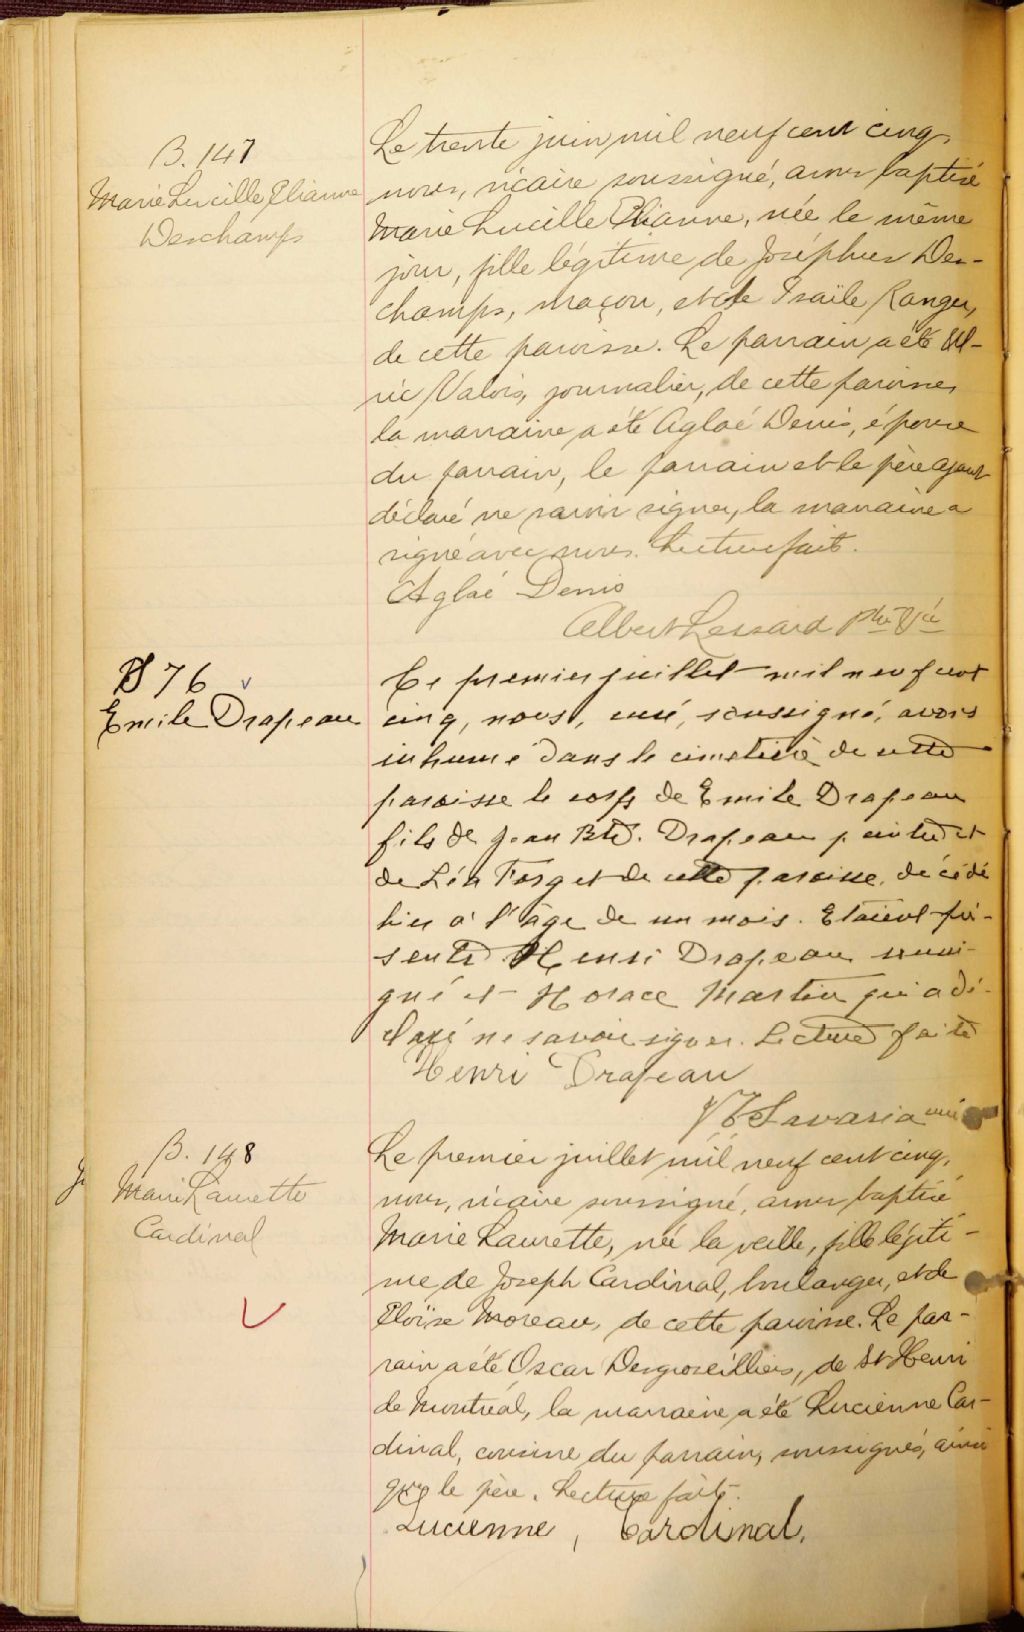 B. 147
Marie Lucille Elianne
Deschamps
Le trente juin mil neuf cent cinq,
nous, vicaire soussigné, avons baptisé
Marie Lucille Elianne, née le même
jour, fille légitime de Joséphus Des-
champs, maçon, et de Izaïle Ranger,
de cette paroisse. Le parrain a été Ul-
ric Valois, journalier, de cette paroisse,
la marraine a été Aglaé Denis, épouse
du parrain, le parrain et le père ayant
déclaré ne savoir signer, la marraine a
signé avec nous. Lecture faite.
Aglaé Denis
Albert Lessard Ptre Vic
S 76
Emile Drapeau
Ce premier juillet mil neuf cent
cinq, nous, curé, soussigné, avons
inhumé dans le cimetière de cette
paroisse le corps de Emile Drapeau
fils de Jean Bte. Drapeau peintre et
de Léa Forget de cette paroisse, décédé
hier à l'âge de un mois. Etaient pré-
sents Henri Drapeau soussi-
gné et Horace Martin qui a dé-
claré ne savoir signer. Lecture faite
Henri Drapeau
Savaria curé
B. 148
Marie Laurette
Cardinal
Le premier juillet mil neuf cent cinq,
nous, vicaire soussigné, avons baptisé
Marie Laurette, née la veille, fille légiti-
me de Joseph Cardinal, boulanger, et de
Eloïse Moreau, de cette paroisse. Le par-
rain a été Oscar Desgroseilliers, de St Henri
de Montréal, la marraine a été Lucienne Car-
dinal, cousine du parrain, soussignés, ainsi
que le père. Lecture faite.
Lucienne, Cardinal.